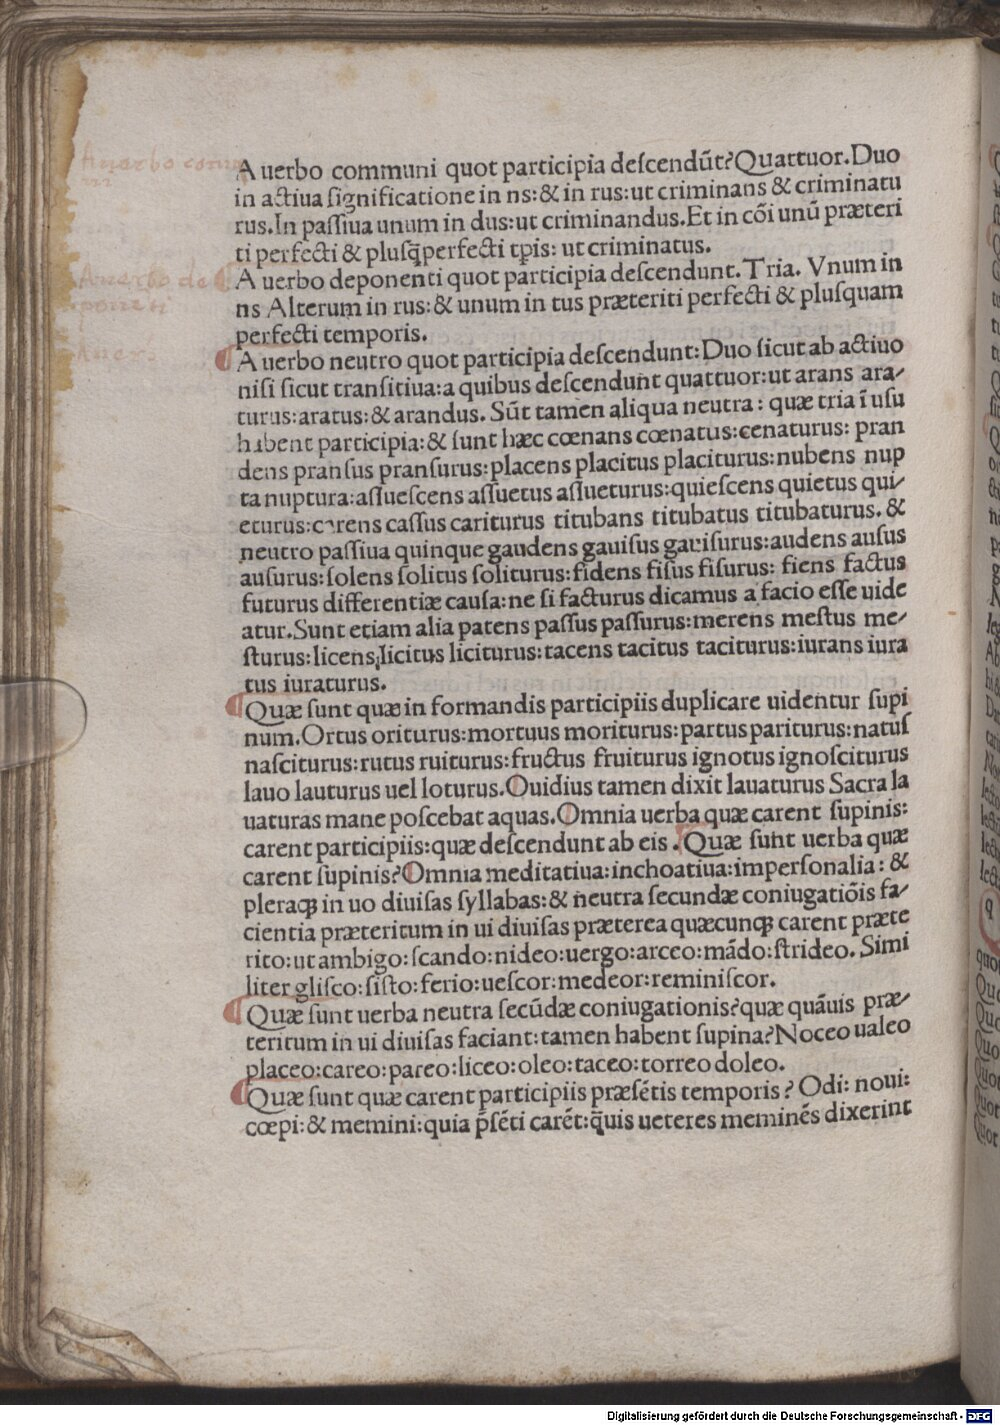 A uerbo communi quot participia deſcendūt?Quattuor.Duo
in actiua ſignificatione in ns:& in rus:ut criminans & criminatu
rus.In paſſiua unum in dus:ut criminandus.Et in cōi unū præteri
ti perfecti & pluſq̄perfecti tp̄is: ut criminatus.
A uerbo deponenti quot participia deſcendunt.Tria. Vnum in
ns Alterum in rus:& unum in tus præteriti perfecti & pluſquam
perfecti temporis.
A uerbo neutro quot participia deſcendunt:Duo ſicut ab actiuo
niſi ſicut tranſitiua:a quibus deſcendunt quattuor:ut arans ara/
turus:aratus:& arandus. Sūt tamen aliqua neutra: quæ tria ī uſu
habent participia:& ſunt hæc cœnans cœnatus:cenaturus: pran
dens pranſus pranſurus:placens placitus placiturus:nubens nup
ta nuptura:aſſueſcens aſſuetus aſſueturus:quieſcens quietus qui/
eturus:carens caſſus cariturus titubans titubatus titubaturus. &
neutro paſſiua quinque gaudens gauiſus gauiſurus:audens auſus
auſurus:ſolens ſolitus ſoliturus:fidens fiſus fiſurus: fiens factus
futurus differentiæ cauſa:ne ſi facturus dicamus a facio eſſe uide
atur.Sunt etiam alia patens paſſus paſſurus:merens meſtus me/
ſturus:licens licitus liciturus:tacens tacitus taciturus:iurans iura
tus iuraturus.
Quæ ſunt quæ in formandis participiis duplicare uidentur ſupi
num.Ortus oriturus:mortuus moriturus:partus pariturus:natuſ
naſciturus:rutus ruiturus:fructus fruiturus ignotus ignoſciturus
lauo lauturus uel loturus.Ouidius tamen dixit lauaturus Sacra la
uaturas mane poſcebat aquas.Omnia uerba quæ carent ſupinis:
carent participiis:quæ deſcendunt ab eis.Quæ ſunt uerba quæ
carent ſupinis?Omnia meditatiua:inchoatiua:imperſonalia: &
pleraqꝫ in uo diuiſas ſyllabas:& neutra ſecundæ coniugatiōis fa/
cientia præteritum in ui diuiſas præterea quæcunqꝫ carent præte
rito:ut ambigo:ſcando:nideo:uergo:arceo:mādo:ſtrideo. Simi
liter gliſco:ſiſto:ferio:ueſcor:medeor:reminiſcor.
Quæ ſunt uerba neutra ſecūdæ coniugationis?quæ quāuis præ/
teritum in ui diuiſas faciant:tamen habent ſupina?Noceo ualeo
placeo:careo:pareo:liceo:oleo:taceo:torreo doleo.
Quæ ſunt quæ carent participiis præſētis temporis? Odi: noui:
cœpi:& memini:quia p̄ſēti carēt:q̄uis ueteres meminēs dixerint
Auerbo de
ponenti
Digitalisierung gefördert durch die Deutsche Forschungsgemeinschaft - DFG